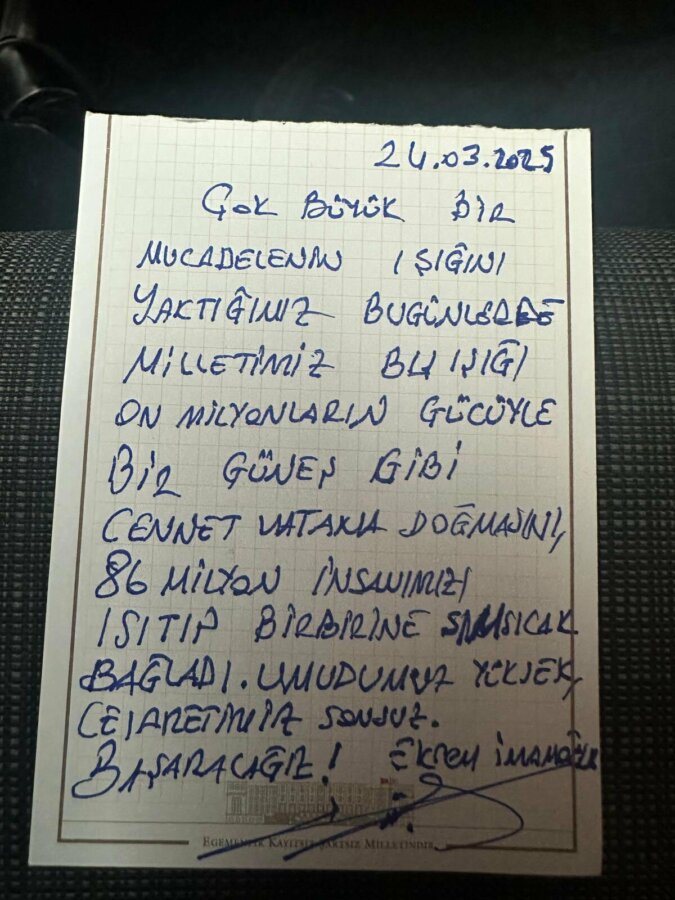 24.03.2025
Çok BÜYÜK BİR
MUCADELENİN IŞIĞINI
YAKTIĞIMIZ BUGÜNLERDE
MİLLETİMİZ BU IŞIĞI
ON MİLYONLARIN GÜCÜYLE
BİR GÜNEŞ GİBİ
CENNET VATANA DOĞMASINI,
86 MİLYON İNSANIMIZI
ISITIP BİRBİRİNE SIMSICAK
BAĞLADI. UMUDUMUZ YÜKSEK,
CESARETİMİZ SONSUZ.
BAŞARACAĞIZ! EKREM İMAMOĞLU
EGEMENLİK KAYITSIZ ŞARTSIZ MİLLETİNDİR